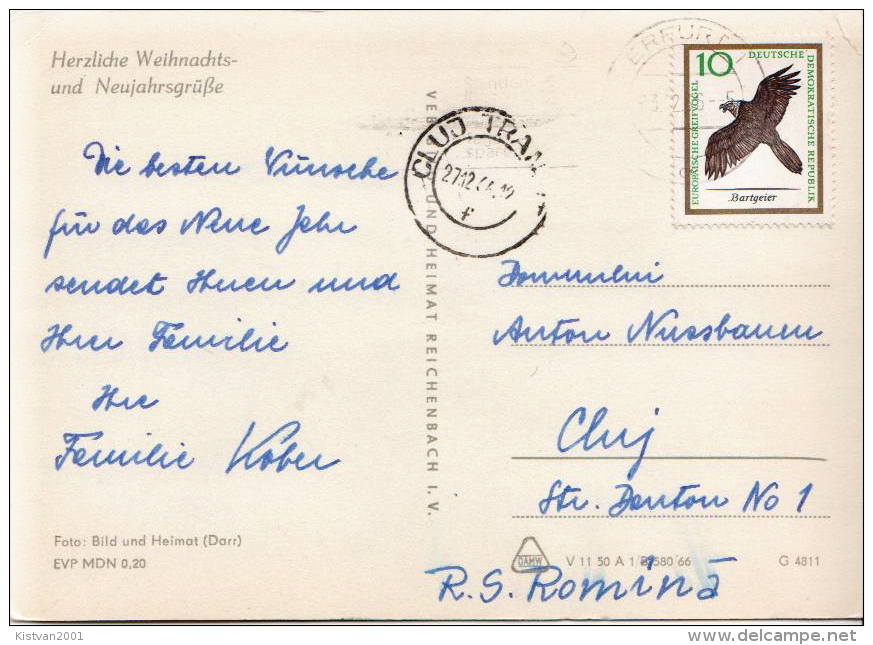 Herzliche Weihnachts-
und Neujahrsgrüße
Die besten Wünsche
für das Neue Jahr
sendet Ihnen und
Ihrer Familie
Ihre
Familie Kober
Foto: Bild und Heimat (Darr)
EVP MDN 0,20
UND HEIMAT REICHENBACH I. V.
CLUJ TRAN
27.12
ERFURT
10
DEUTSCHE
DEMOKRATISCHE REPUBLIK
EUROPÄISCHE GREIFVÖGEL
Bartgeier
Domnului
Anton Nussbauer
Cluj
Str. Danton No 1
R.S. Romînă
DAMW
V 11 50 A 1/B 580/66
G 4811
Kistvan2001
delcampe.net